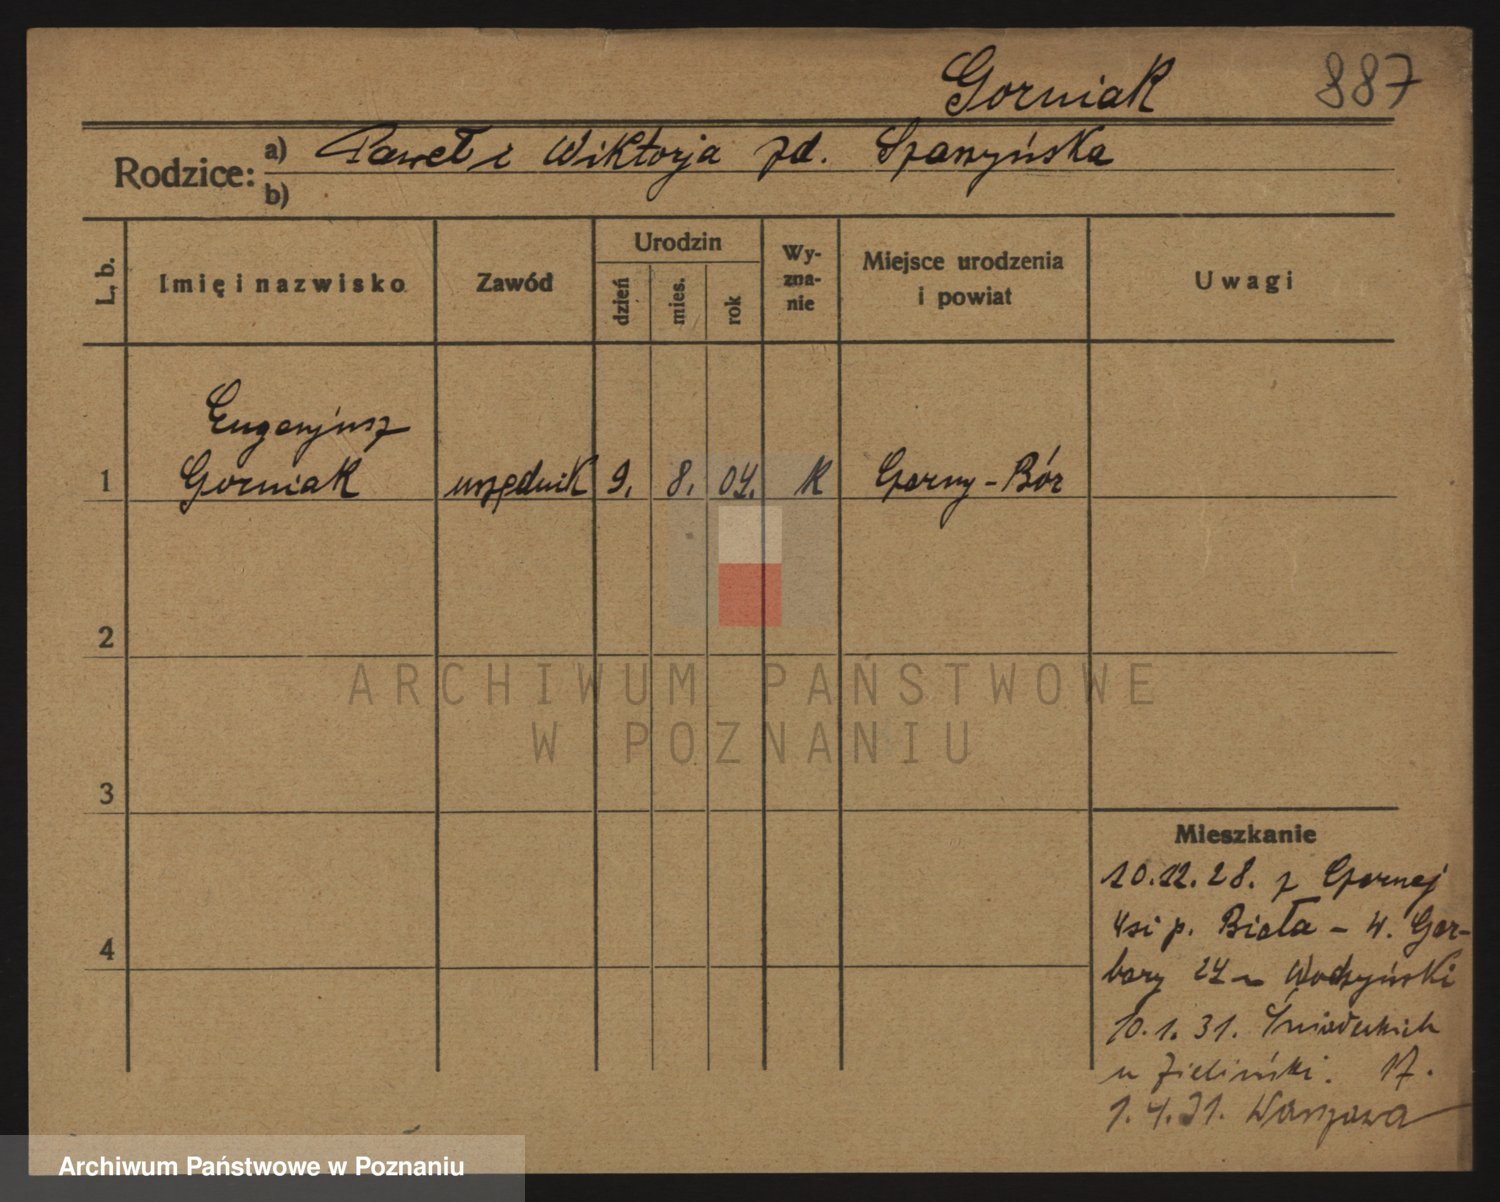 Gorniak 887
Rodzice: a) Paweł i Wiktorja zd. Szaszyńska
b)
L. b. Imię i nazwisko Zawód Urodzin dzień mies. rok Wyznanie Miejsce urodzenia i powiat Uwagi
Eugenjusz
1 Gorniak urzędnik 9. 8. 04. K Czarny-Bór
2
ARCHIWUM PAŃSTWOWE
W POZNANIU
3
Mieszkanie
10.12.28. z Czarnej
4 Wsi p. Biała - W. Gar-
bary 24 - Wodzyński
10.1.31. Śniadeckich
u Zieliński. 17.
1.4.31. Warszawa
Archiwum Państwowe w Poznaniu